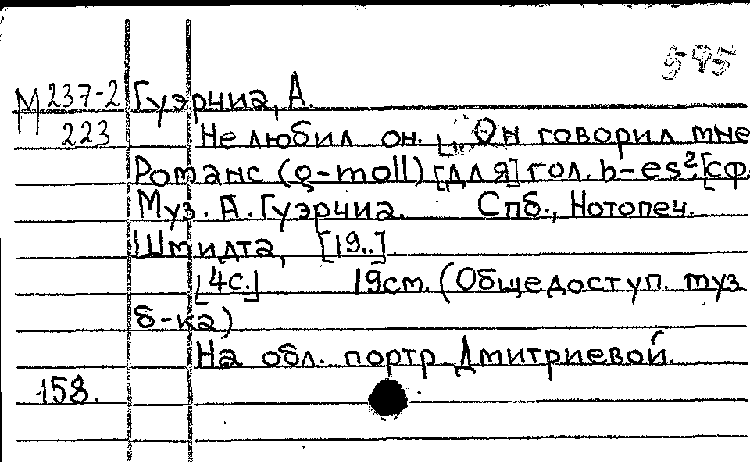 595
М 237-2 Гуэрчиа, А.
223 Не любил он. [... Он говорил мне
Романс (g-moll) [для] гол. b-es². [сф.
Муз. А. Гуэрчиа. Спб., Нотопеч.
Шмидта, [19..]
[4с.] 19см. (Общедоступ. муз
б-ка)
На обл. портр Дмитриевой.
158.